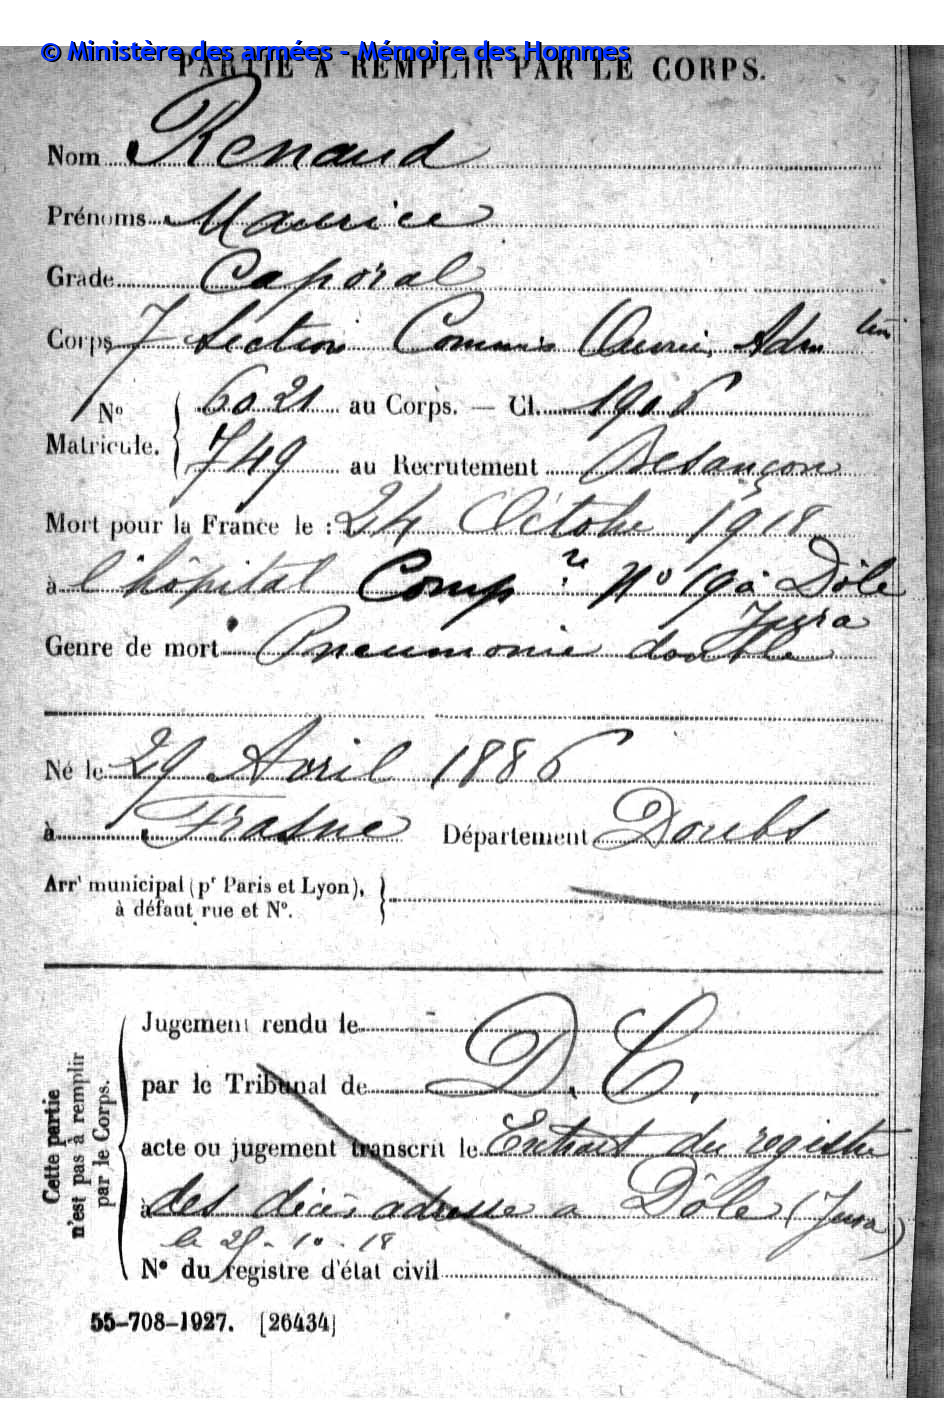 © Ministère des armées - Mémoire des Hommes
PARTIE A REMPLIR PAR LE CORPS.
Nom Renaud
Prénoms Maurice
Grade Caporal
Corps 7 Section Commis Ouvri. Adm
No Matricule. 6021 au Corps. — Cl. 1906
749 au Recrutement Besançon
Mort pour la France le : 24 Octobre 1918
à l'hôpital Comp re No 19 à Dôle
Jura
Genre de mort Pneumonie double
Né le 29 Avril 1886
à Frasne Département Doubs
Arrt municipal (pr Paris et Lyon),
à défaut rue et No.
Cette partie
n'est pas à remplir
par le Corps.
Jugement rendu le
par le Tribunal de D. C.
acte ou jugement transcrit le Extrait du registre
à des décès adressé a Dôle (Jura)
le 25-10-18
No du registre d'état civil
55-708-1927. [26434]